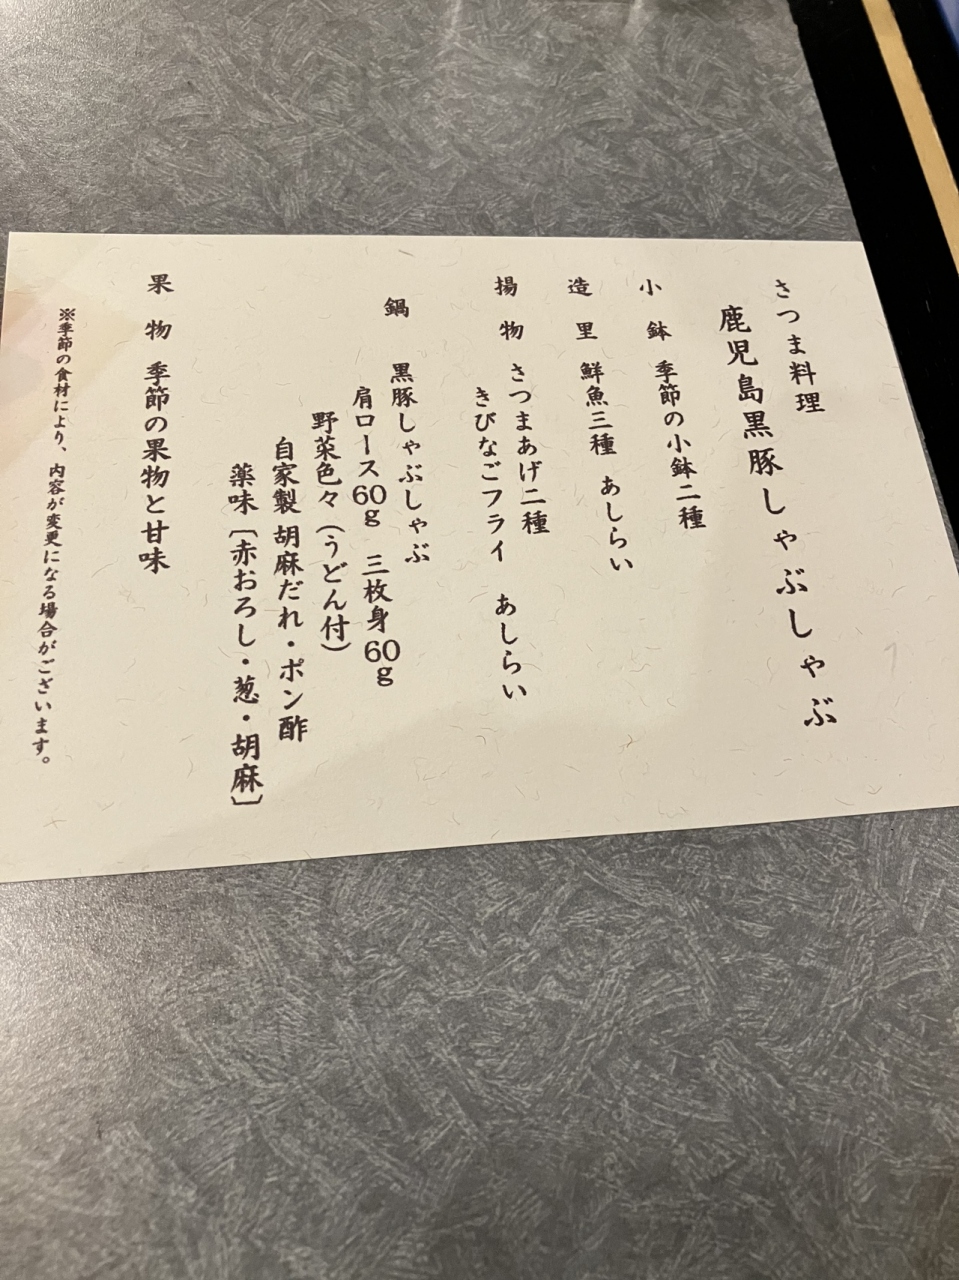 さつま料理
鹿児島黒豚しゃぶしゃぶ
小鉢 季節の小鉢二種
造里 鮮魚三種 あしらい
揚物 さつまあげ二種
きびなごフライ あしらい
鍋 黒豚しゃぶしゃぶ
肩ロース60g 三枚身60g
野菜色々(うどん付)
自家製 胡麻だれ・ポン酢
薬味〔赤おろし・葱・胡麻〕
果物 季節の果物と甘味
※季節の食材により、内容が変更になる場合がございます。